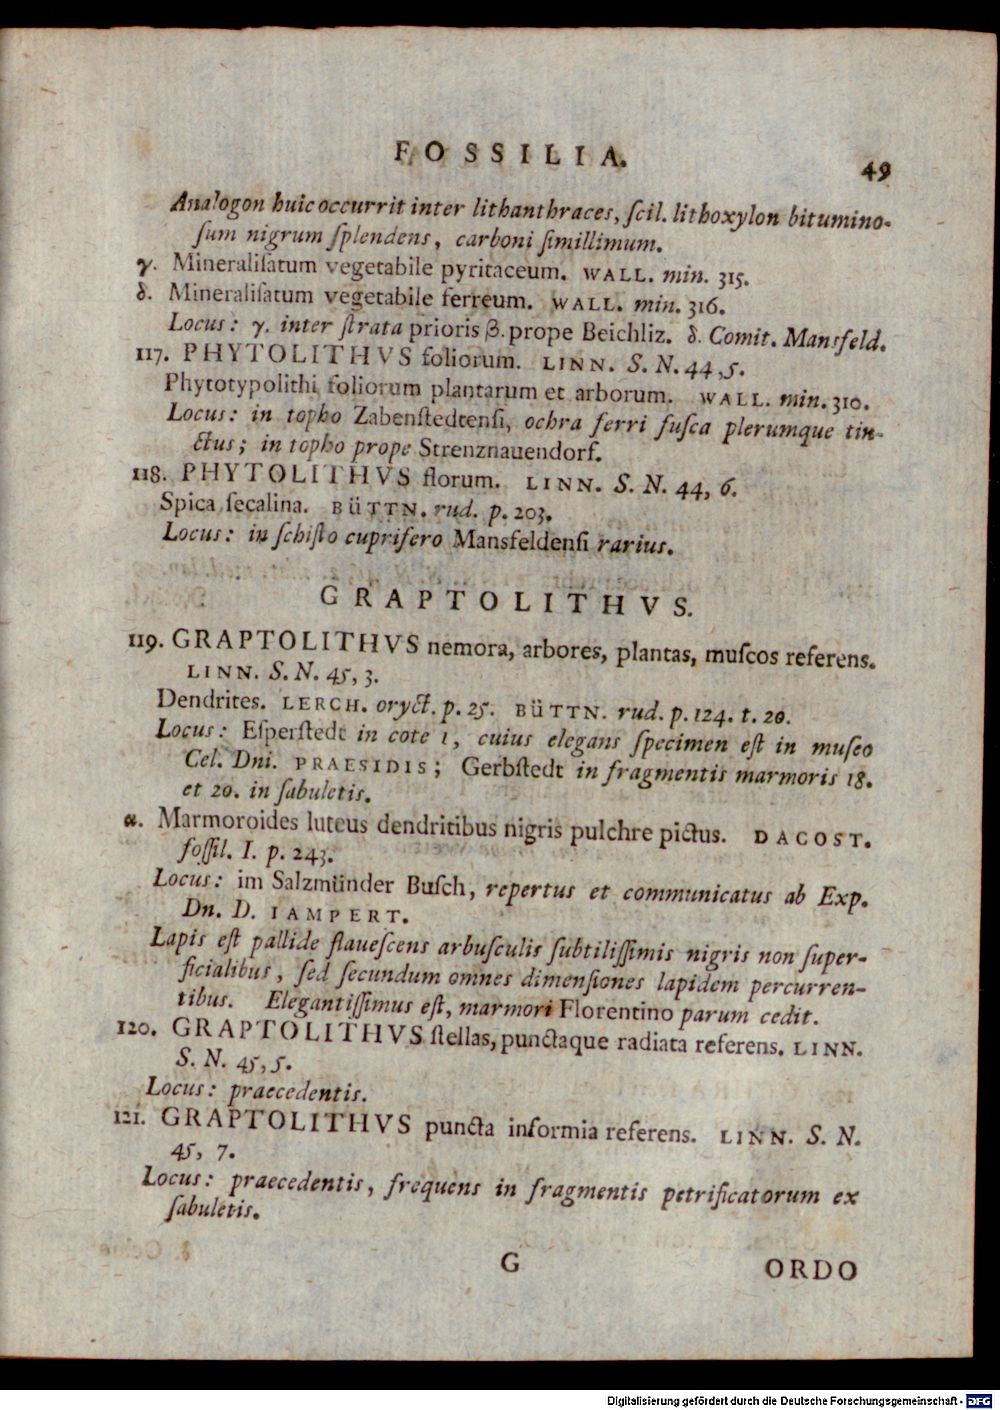 FOSSILIA.
49
Analogon huic occurrit inter lithanthraces, ſcil. lithoxylon bitumino-
ſum nigrum ſplendens, carboni ſimillimum.
γ. Mineraliſatum vegetabile pyritaceum. WALL. min. 315.
δ. Mineraliſatum vegetabile ferreum. WALL. min. 316.
Locus: γ. inter ſtrata prioris β. prope Beichliz. δ. Comit. Mansfeld.
117. PHYTOLITHVS foliorum. LINN. S. N. 44, 5.
Phytotypolithi foliorum plantarum et arborum. WALL. min. 310.
Locus: in topho Zabenſtedtenſi, ochra ferri fuſca plerumque tin-
ctus; in topho prope Strenznauendorf.
118. PHYTOLITHVS florum. LINN. S. N. 44, 6.
Spica ſecalina. BüTTN. rud. p. 203.
Locus: in ſchiſto cuprifero Mansfeldenſi rarius.
GRAPTOLITHVS.
119. GRAPTOLITHVS nemora, arbores, plantas, muſcos referens.
LINN. S. N. 45, 3.
Dendrites. LERCH. oryct. p. 25. BüTTN. rud. p. 124. t. 20.
Locus: Eſperſtedt in cote 1, cuius elegans ſpecimen eſt in muſeo
Cel. Dni. PRAESIDIS; Gerbſtedt in fragmentis marmoris 18.
et 20. in ſabuletis.
α. Marmoroides luteus dendritibus nigris pulchre pictus. DACOST.
foſſil. I. p. 243.
Locus: im Salzmünder Buſch, repertus et communicatus ab Exp.
Dn. D. IAMPERT.
Lapis eſt pallide flaueſcens arbuſculis ſubtiliſſimis nigris non ſuper-
ficialibus, ſed ſecundum omnes dimenſiones lapidem percurren-
tibus. Elegantiſſimus eſt, marmori Florentino parum cedit.
120. GRAPTOLITHVS ſtellas, punctaque radiata referens. LINN.
S. N. 45, 5.
Locus: praecedentis.
121. GRAPTOLITHVS puncta informia referens. LINN. S. N.
45, 7.
Locus: praecedentis, frequens in fragmentis petrificatorum ex
ſabuletis.
G
ORDO
Digitalisierung gefördert durch die Deutsche Forschungsgemeinschaft - DFG